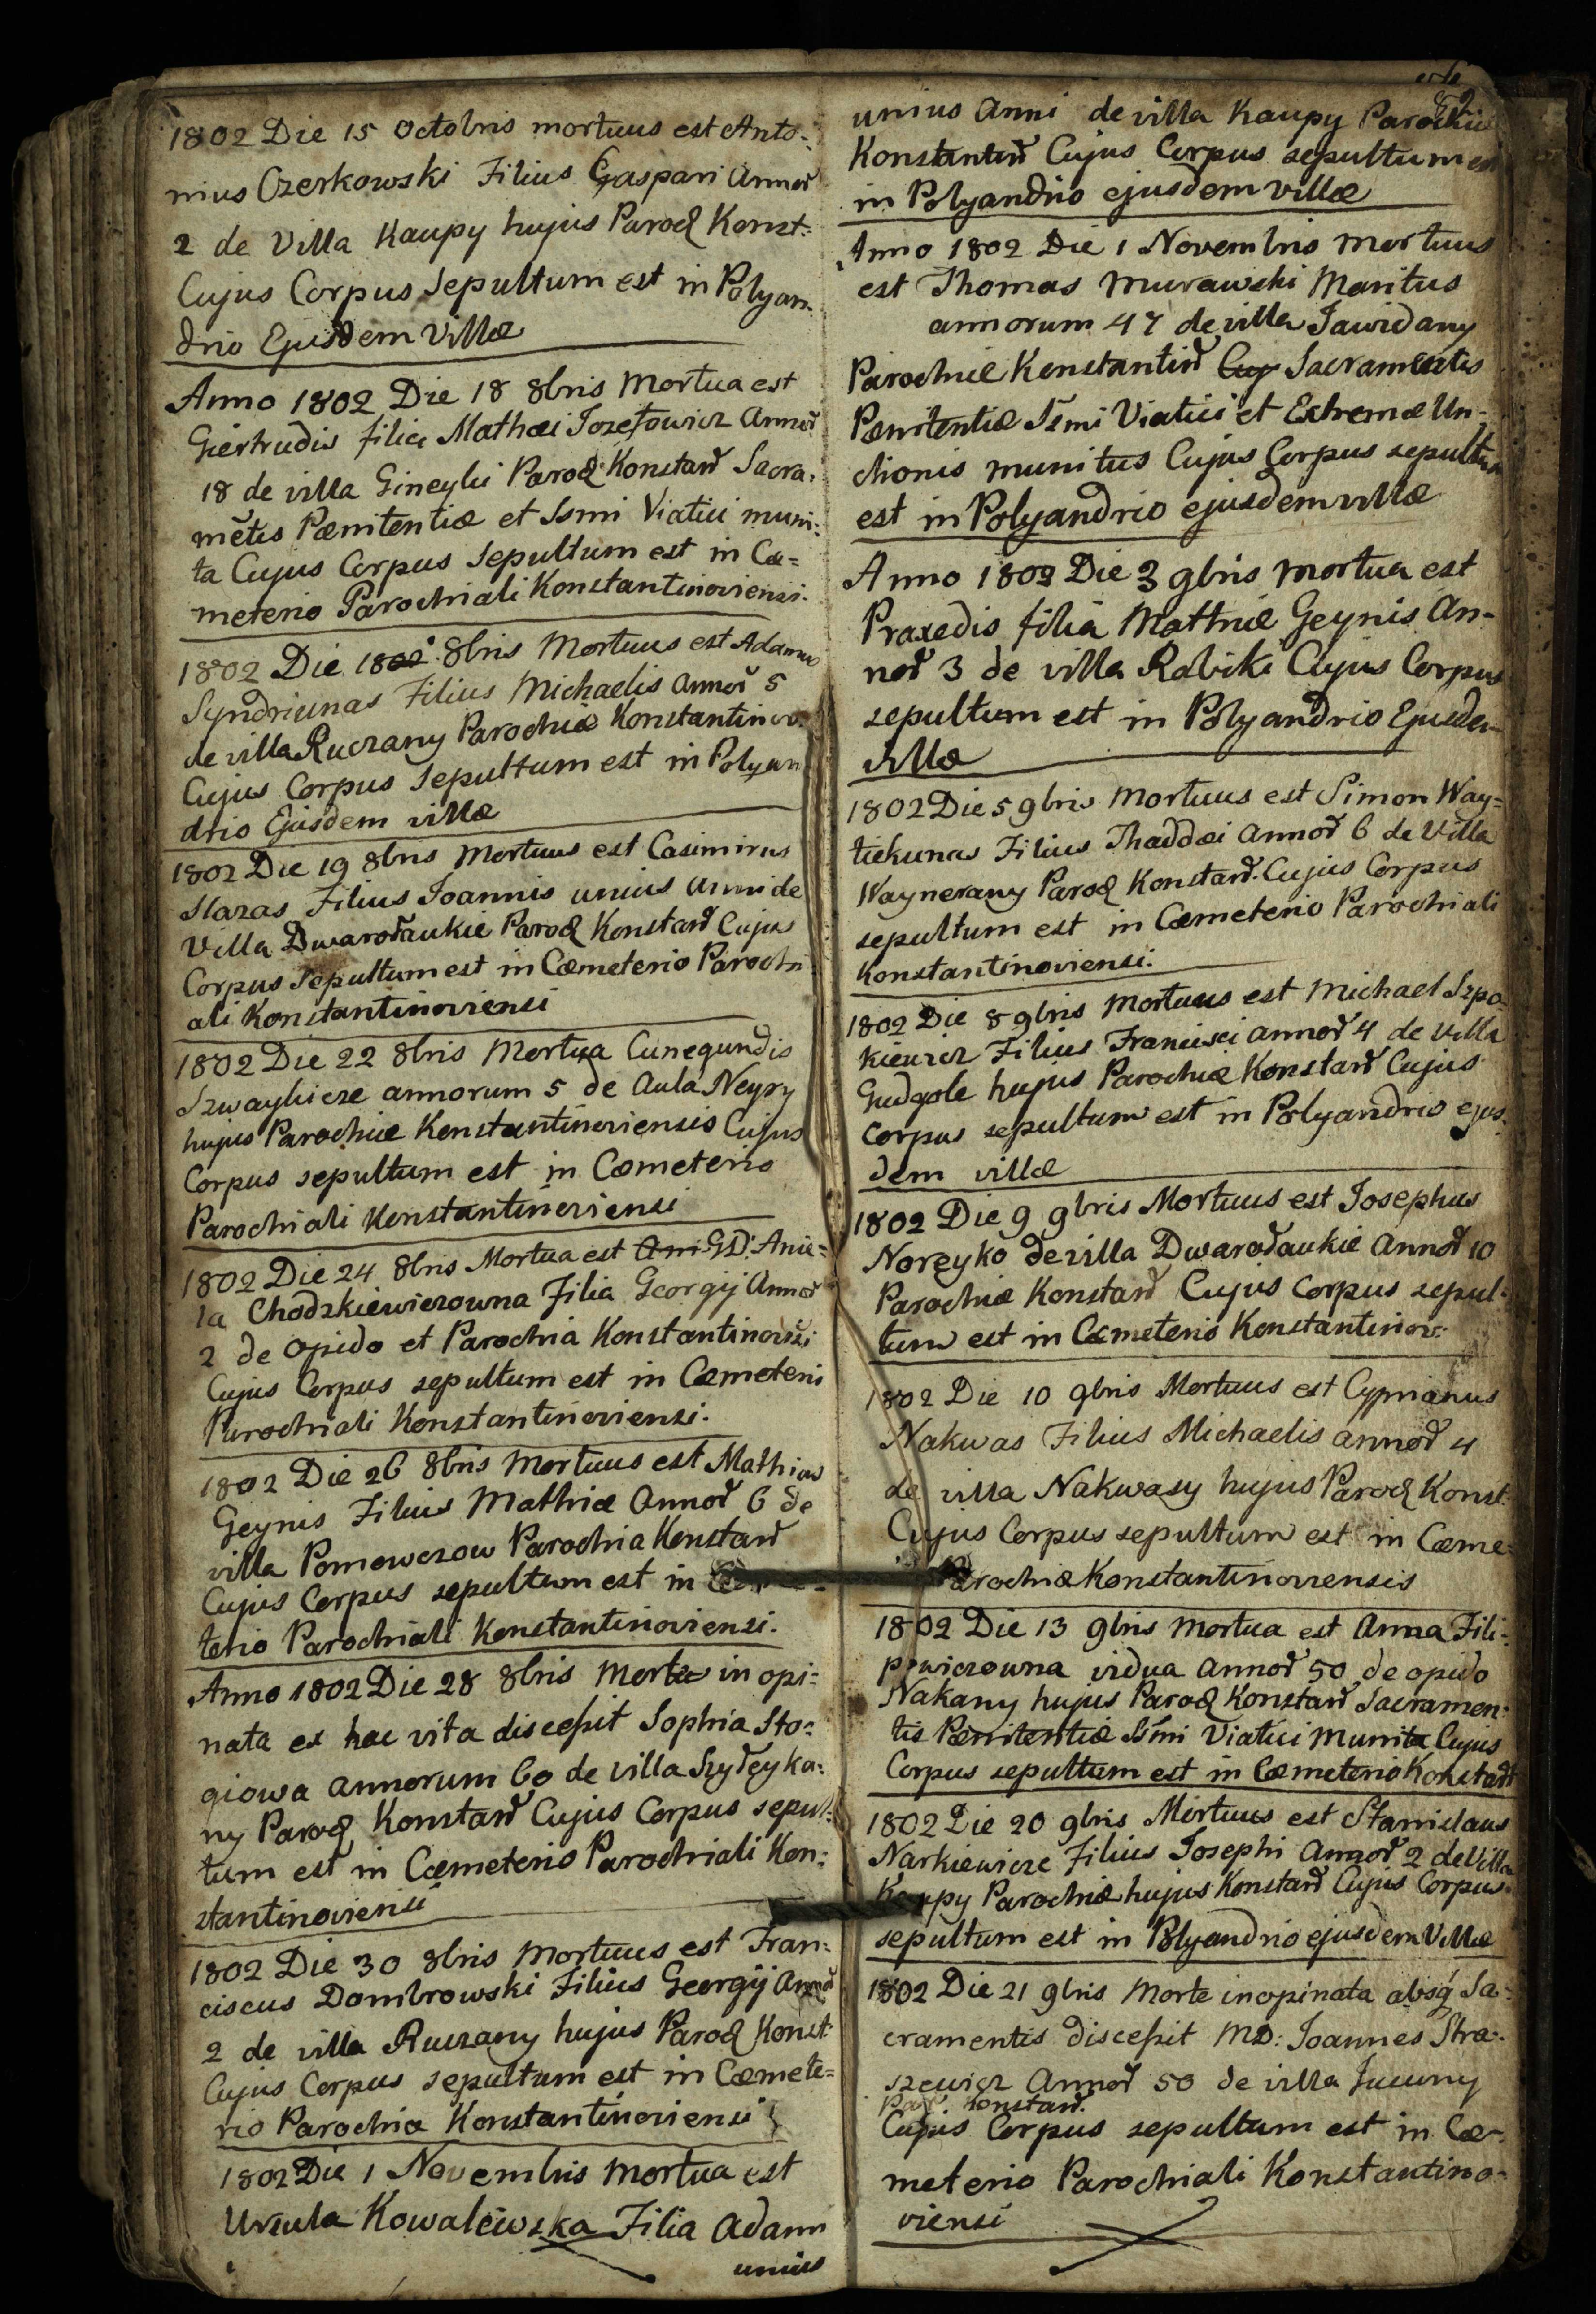 1802 Die 15 Octobris mortuus est Anto-
nius Czerkowski Filius Gaspari Annor̃
2 de Villa Kaupy hujus Paroch Konst:
Cujus Corpus Sepultum est in Polyan-
drio Ejusdem Villæ
Anno 1802 Die 18 8bris Mortua est
Giertrudis filia Mathæi Jozefowicz Annor̃
18 de villa Gineylie Paroch Konstan̄ Sacra-
mẽtis Pænitentiæ et Ssmi Viatici muni-
ta Cujus Corpus Sepultum est in Cæ=
meterio Parochiali Konstantinoviensi.
1802 Die 18 8bris Mortuus est Adamus
Syndriunas Filius Michaelis annor̃ 5
de villa Ruczany Parochiæ Konstantinov.
Cujus Corpus Sepultum est in Polyan
drio Ejusdem villæ
1802 Die 19 8bris Mortuus est Casimirus
Slazas Filius Joannis unius anni de
Villa Dwarodaukie Paroch Konstan̄ Cujus
Corpus Sepultum est in Cæmeterio Parochi
ali Konstantinoviensi
1802 Die 22 8bris Mortua Cunegundis
Szwaylicze annorum 5 de Aula Neyry
hujus Parochiæ Konstantinoviensis Cujus
Corpus sepultum est in Cæmeterio
Parochiali Konstantinoviensi
1802 Die 24 8bris Mortua est Ani GD: Anie=
la Chodzkiewiczowna Filia Georgij Annor̃
2 de opido et Parochia Konstantinovsi
Cujus Corpus sepultum est in Cæmeterio
Parochiali Konstantinoviensi.
1802 Die 26 8bris Mortuus est Mathias
Geynis Filius Mathiæ Annor̃ 6 de
villa Pomowczow Parochia Konstan̄
Cujus Corpus sepultum est in Cæme-
terio Parochiali Konstantinoviensi.
Anno 1802 Die 28 8bris Morte in opi-
nata ex hac vita discessit Sophia Sto-
giowa annorum 60 de villa Szyleyka-
ny Paroch Konstan̄ Cujus Corpus sepul-
tum est in Cæmeterio Parochiali Kon-
stantinoviensi
1802 Die 30 8bris Mortuus est Fran-
ciscus Dombrowski Filius Georgij Annor̃
2 de villa Ruczany hujus Paroch Konst
Cujus Corpus sepultum est in Cæmete=
rio Parochia Konstantinoviensi
1802 Die 1 Novembris Mortua est
Ursula Kowalewska Filia Adami
unius
unius Anni de villa Kaupy Parochiæ
Konstantin̄ Cujus Corpus sepultum est
in Polyandrio ejusdem villæ
Anno 1802 Die 1 Novembris Mortuus
est Thomas Murawski Maritus
annorum 47 de villa Jawidany
Parochiæ Konstantin̄ Cuj Sacramentis
Pænitentiæ Ssmi Viatici et Extremæ Un-
ctionis munitus Cujus Corpus sepultum
est in Polyandrio ejusdem villæ
Anno 1802 Die 3 9bris Mortua est
Praxedis filia Mathiæ Geynis An-
nor̃ 3 de villa Rabiki Cujus Corpus
sepultum est in Polyandrio Ejusdem
villæ
1802 Die 5 9bris Mortuus est Simon Way=
tiekunas Filius Thaddæi annor̃ 6 de Villa
Waynerany Paroch Konstan̄. Cujus Corpus
sepultum est in Cæmeterio Parochiali
Konstantinoviensi.
1802 Die 8 9bris Mortuus est Michael Szpa-
kiewicz Filius Francisci annor̃ 4 de Villa
Gudgole hujus Parochiæ Konstan̄ Cujus
Corpus sepultum est in Polyandrio ejus-
dem villæ
1802 Die 9 9bris Mortuus est Josephus
Noreyko de villa Dwarodaukie Annor̃ 10
Parochiæ Konstan̄ Cujus Corpus sepul-
tum est in Cæmeterio Konstantinov:
1802 Die 10 9bris Mortuus est Cyprianus
Nakwas Filius Michaelis annor̃ 4
de villa Nakwasy hujus Paroch Konst.
Cujus Corpus sepultum est in Cæme=
Parochiæ Konstantinoviensis
1802 Die 13 9bris Mortua est Anna Fili-
powiczowna vidua Annor̃ 50 de opido
Nakany hujus Paroch Konstan̄ Sacramen-
tis Pænitentiæ Ssmi Viatici Munita Cujus
Corpus sepultum est in Cæmeterio Konstan̄
1802 Die 20 9bris Mortuus est Stanislaus
Narkiewicze Filius Josephi Annor̃ 2 de Villa
Kaupy Parochiæ hujus Konstan̄ Cujus Corpus
sepultum est in Polyandrio ejusdem Villæ
1802 Die 21 9bris Morte inopinata absq̃ Sa-
cramentis discessit MD: Joannes Stra-
szewicz Annor̃ 50 de villa Jucuny
Par. Konstan̄.
Cujus Corpus sepultum est in Cæ-
meterio Parochiali Konstantino-
viensi